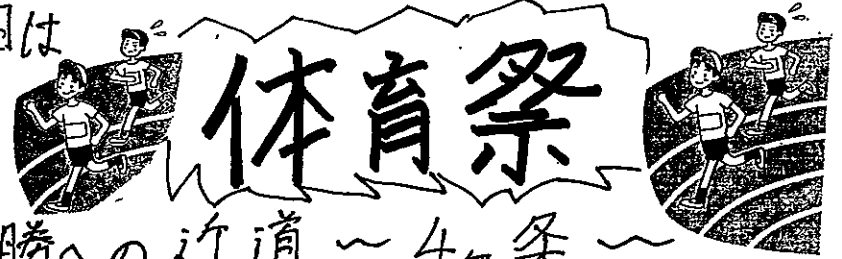 は
体育祭
勝への近道~4ヶ条~